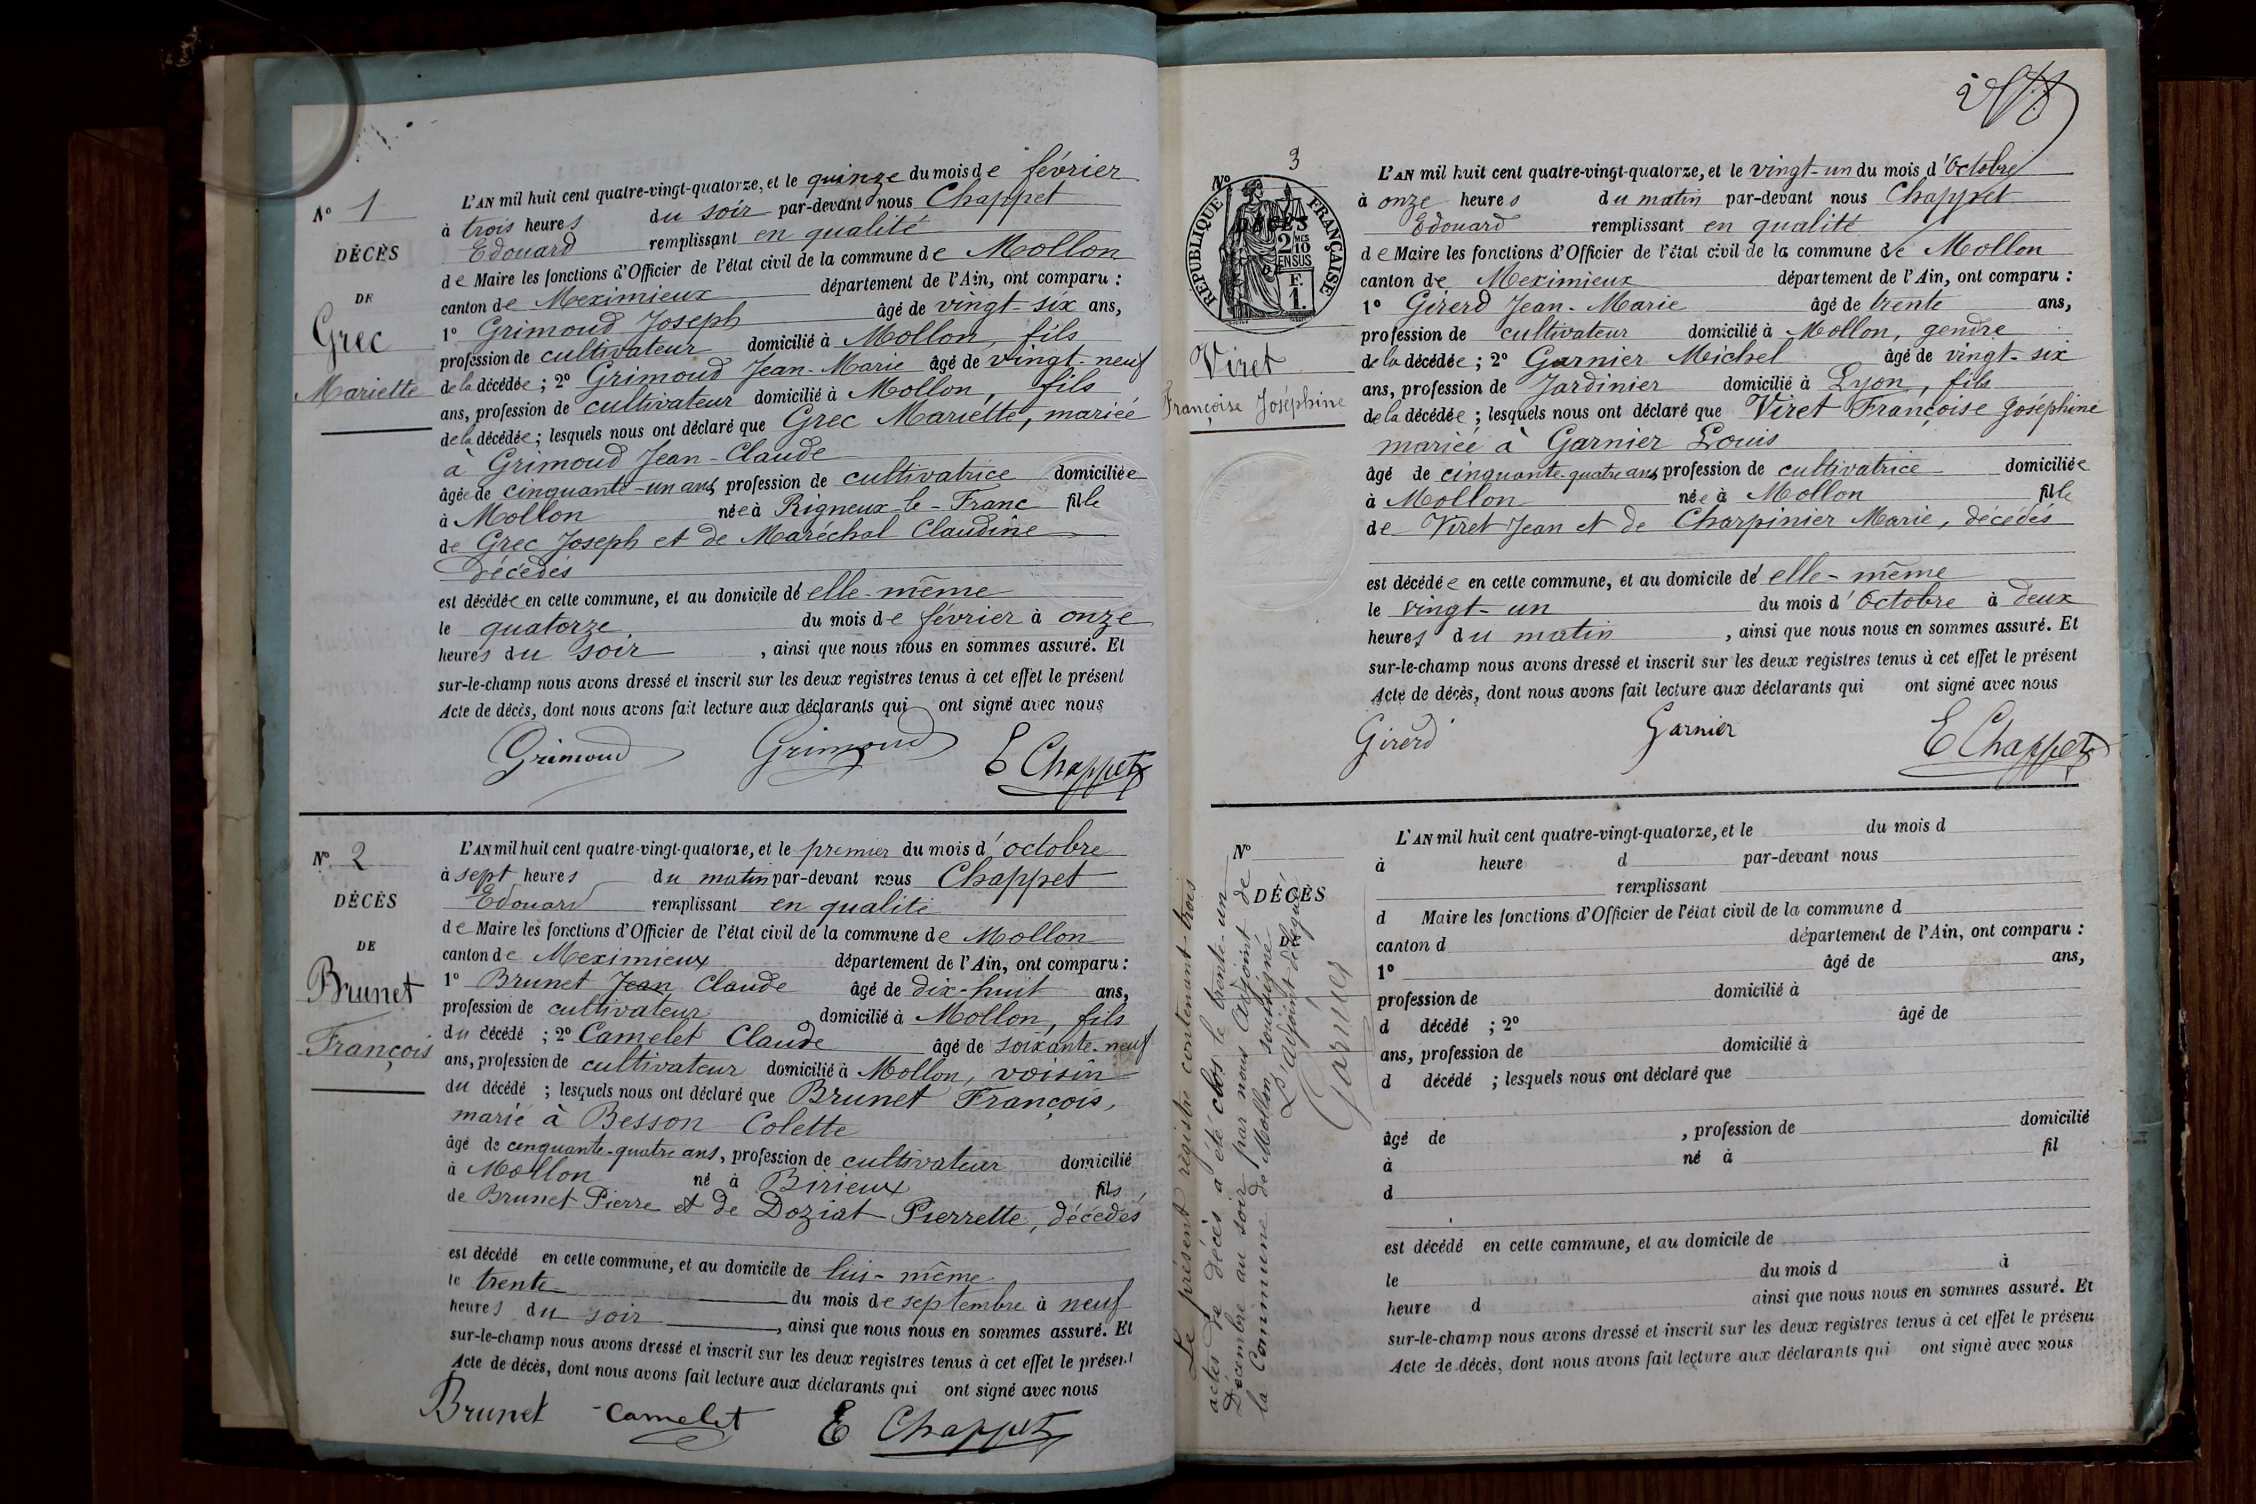 N° 1
DÉCÈS
DE
Grec
Mariette
L'AN mil huit cent quatre-vingt-quatorze, et le quinze du mois de février
à trois heures du soir par-devant nous Chappet
Edouard remplissant en qualité
de Maire les fonctions d'Officier de l'état civil de la commune de Mollon
canton de Meximieux département de l'Ain, ont comparu :
1° Grimoud Joseph âgé de vingt-six ans,
profession de cultivateur domicilié à Mollon, fils
de la décédée ; 2° Grimoud Jean-Marie âgé de vingt-neuf
ans, profession de cultivateur domicilié à Mollon, fils
de la décédée ; lesquels nous ont déclaré que Grec Mariette, mariée
à Grimoud Jean-Claude
âgée de cinquante-un ans, profession de cultivatrice domiciliée
à Mollon née à Rigneux-le-Franc fille
de Grec Joseph et de Maréchal Claudine
décédés
est décédée en cette commune, et au domicile d'elle-même
le quatorze du mois de février à onze
heures du soir, ainsi que nous nous en sommes assuré. Et
sur-le-champ nous avons dressé et inscrit sur les deux registres tenus à cet effet le présent
Acte de décès, dont nous avons fait lecture aux déclarants qui ont signé avec nous
Grimoud Grimoud E Chappet
N° 2
DÉCÈS
DE
Brunet
François
L'AN mil huit cent quatre-vingt-quatorze, et le premier du mois d'octobre
à sept heures du matin par-devant nous Chappet
Edouard remplissant en qualité
de Maire les fonctions d'Officier de l'état civil de la commune de Mollon
canton de Meximieux département de l'Ain, ont comparu :
1° Brunet Jean Claude âgé de dix-huit ans,
profession de cultivateur domicilié à Mollon, fils
du décédé ; 2° Camelet Claude âgé de soixante-neuf
ans, profession de cultivateur domicilié à Mollon, voisin
du décédé ; lesquels nous ont déclaré que Brunet François,
marié à Besson Colette
âgé de cinquante-quatre ans, profession de cultivateur domicilié
à Mollon né à Birieux fils
de Brunet Pierre et de Doziat Pierrette, décédés
est décédé en cette commune, et au domicile de lui-même
le trente du mois de septembre à neuf
heures du soir, ainsi que nous nous en sommes assuré. Et
sur-le-champ nous avons dressé et inscrit sur les deux registres tenus à cet effet le présent
Acte de décès, dont nous avons fait lecture aux déclarants qui ont signé avec nous
Brunet Camelet E Chappet
3
N°
RÉPUBLIQUE FRANÇAISE
2 MES
10
EN SUS
F.
1.
Viret
Françoise Joséphine
L'AN mil huit cent quatre-vingt-quatorze, et le vingt-un du mois d'Octobre
à onze heures du matin par-devant nous Chappet
Edouard remplissant en qualité
de Maire les fonctions d'Officier de l'état civil de la commune de Mollon
canton de Meximieux département de l'Ain, ont comparu :
1° Girerd Jean-Marie âgé de trente ans,
profession de cultivateur domicilié à Mollon, gendre
de la décédée ; 2° Garnier Michel âgé de vingt-six
ans, profession de Jardinier domicilié à Lyon, fils
de la décédée ; lesquels nous ont déclaré que Viret Françoise Joséphine
mariée à Garnier Louis
âgé de cinquante-quatre ans, profession de cultivatrice domiciliée
à Mollon née à Mollon fille
de Viret Jean et de Charpinier Marie, décédés
est décédée en cette commune, et au domicile d'elle-même
le vingt-un du mois d'Octobre à deux
heures du matin, ainsi que nous nous en sommes assuré. Et
sur-le-champ nous avons dressé et inscrit sur les deux registres tenus à cet effet le présent
Acte de décès, dont nous avons fait lecture aux déclarants qui ont signé avec nous
Girerd Garnier E Chappet
N°
DÉCÈS
DE
Le présent registre contenant trois
actes de décès a été clos le trente-un
Décembre au soir par nous Adjoint de
la Commune de Mollon, soussigné
L'adjoint délégué
Garnier
L'AN mil huit cent quatre-vingt-quatorze, et le du mois d
à heure d par-devant nous
remplissant
d Maire les fonctions d'Officier de l'état civil de la commune d
canton d département de l'Ain, ont comparu :
1° âgé de ans,
profession de domicilié à
d décédé ; 2° âgé de
ans, profession de domicilié à
d décédé ; lesquels nous ont déclaré que
âgé de , profession de domicilié
à né à fil
d
est décédé en cette commune, et au domicile de
le du mois d à
heure d ainsi que nous nous en sommes assuré. Et
sur-le-champ nous avons dressé et inscrit sur les deux registres tenus à cet effet le présent
Acte de décès, dont nous avons fait lecture aux déclarants qui ont signé avec nous